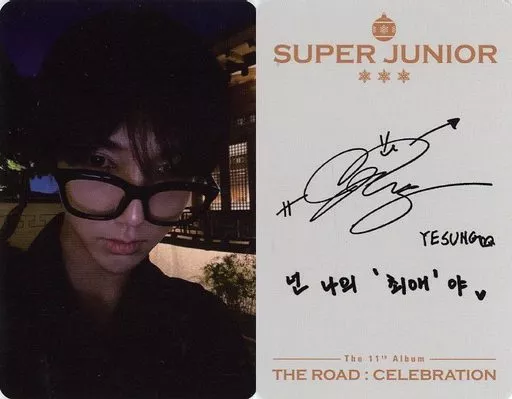 SUPER JUNIOR
YESUNG
넌 나의 '최애' 야
The 11th Album
THE ROAD : CELEBRATION